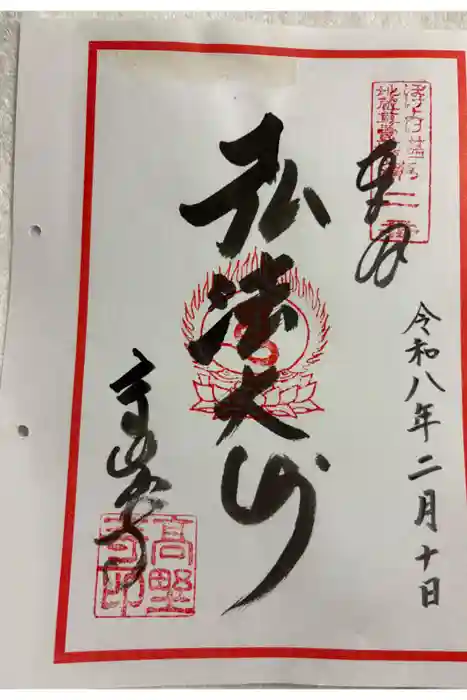 奉拝
令和八年二月十日
弘法大師
高野寺
高野
寺印